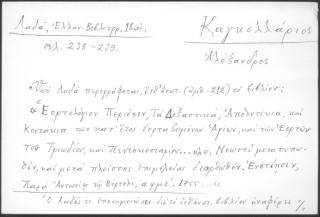 Λαδᾶ, Ἑλλην. Βιβλιογρ. 18 αἰ.
σελ. 238-239.
Καγκελλάριος
Ἀλέξανδρος
Ὑπὸ Λαδᾶ περιγράφεται, τὸ βιβλίον:
"Ἑορτολόγιον Περιέχον, Τὰ Δοξαστικά, Ἀπολυτίκια, καὶ
Κοντάκια τῶν κατ' ἔτος ἑορταζομένων Ἁγίων, καὶ τῶν Ἑορτῶν
τοῦ Τριωδίου, καὶ Πεντηκοσταρίου... κλπ. Νεωστὶ μετατυπω-
θέν, καὶ μετὰ πλείστης ἐπιμελείας διορθωθέν. Ἐνετίησιν,
Παρὰ Ἀντωνίῳ τῷ Βόρτολι, 1755..."
Ὁ Λαδᾶς ἐν ὑποσημειώσει διὰ τὸ βιβλίον ἀναφέρει %